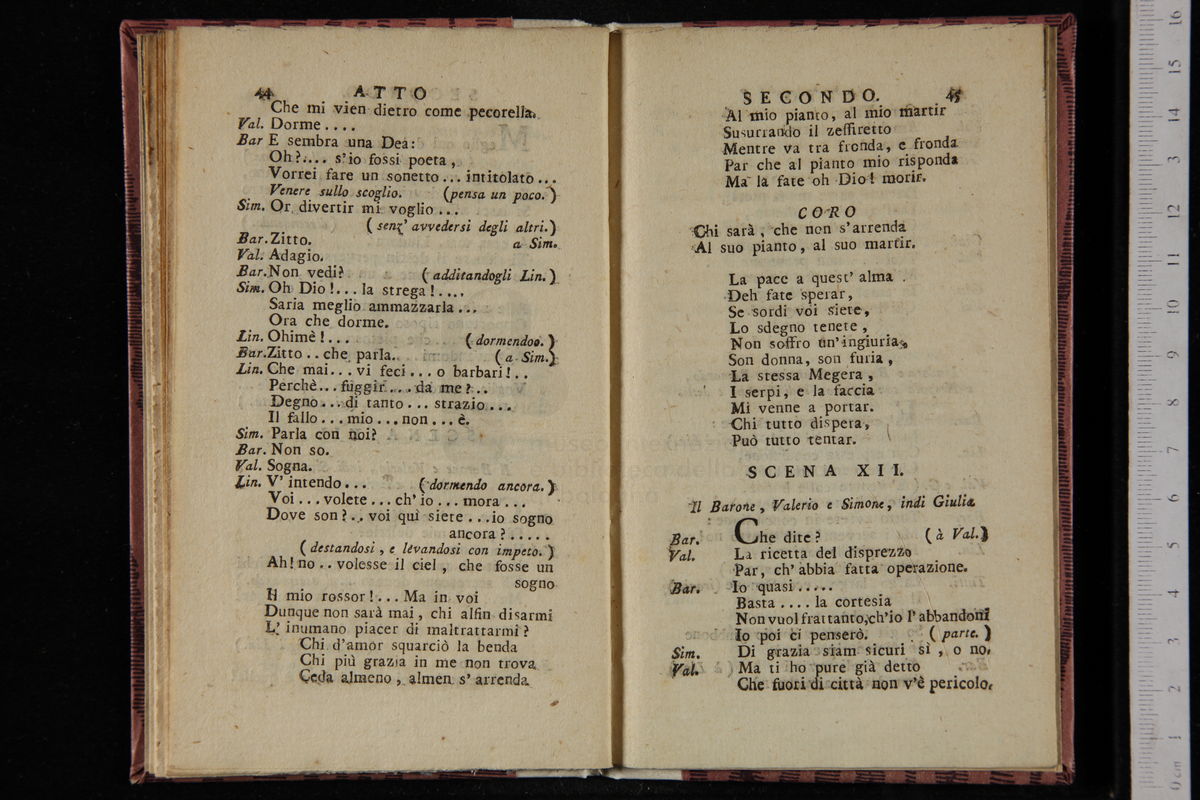 44 ATTO
Che mi vien dietro come pecorella.
Val. Dorme....
Bar E sembra una Dea:
Oh?.... s'io fossi poeta,
Vorrei fare un sonetto... intitolato...
Venere sullo scoglio. (pensa un poco.)
Sim. Or divertir mi voglio...
(senz' avvedersi degli altri.)
Bar. Zitto. a Sim.
Val. Adagio.
Bar. Non vedi? (additandogli Lin.)
Sim. Oh Dio!... la strega!....
Saria meglio ammazzarla...
Ora che dorme.
Lin. Ohimè!... (dormendoo.)
Bar. Zitto.. che parla. (a Sim.)
Lin. Che mai... vi feci... o barbari!..
Perchè... fuggir... da me?..
Degno... di tanto... strazio...
Il fallo... mio... non... è.
Sim. Parla con noi?
Bar. Non so.
Val. Sogna.
Lin. V' intendo... (dormendo ancora.)
Voi... volete... ch' io... mora...
Dove son?.. voi quì siete...io sogno
ancora?.....
(destandosi, e levandosi con impeto.)
Ah! no.. volesse il ciel, che fosse un
sogno
Il mio rossor!... Ma in voi
Dunque non sarà mai, chi alfin disarmi
L' inumano piacer di maltrattarmi?
Chi d'amor squarciò la benda
Chi più grazia in me non trova
Ceda almeno, almen s' arrenda
SECONDO. 45
Al mio pianto, al mio martir
Susurrando il zeffiretto
Mentre va tra fronda, e fronda
Par che al pianto mio risponda
Ma la fate oh Dio! morir.
CORO
Chi sarà, che non s'arrenda
Al suo pianto, al suo martir.
La pace a quest' alma
Deh fate sperar,
Se sordi voi siete,
Lo sdegno tenete,
Non soffro un' ingiuria,
Son donna, son furia,
La stessa Megera,
I serpi, e la faccia
Mi venne a portar.
Chi tutto dispera,
Può tutto tentar.
SCENA XII.
Il Barone, Valerio e Simone, indi Giulia
Bar. Che dite? (à Val.)
Val. La ricetta del disprezzo
Par, ch' abbia fatta operazione.
Bar. Io quasi.....
Basta.... la cortesia
Non vuol frattanto, ch'io l'abbandoni
Io poi ci penserò. (parte.)
Sim. Di grazia siam sicuri sì, o no.
Val. Ma ti ho pure già detto
Che fuori di città non v'è pericolo.